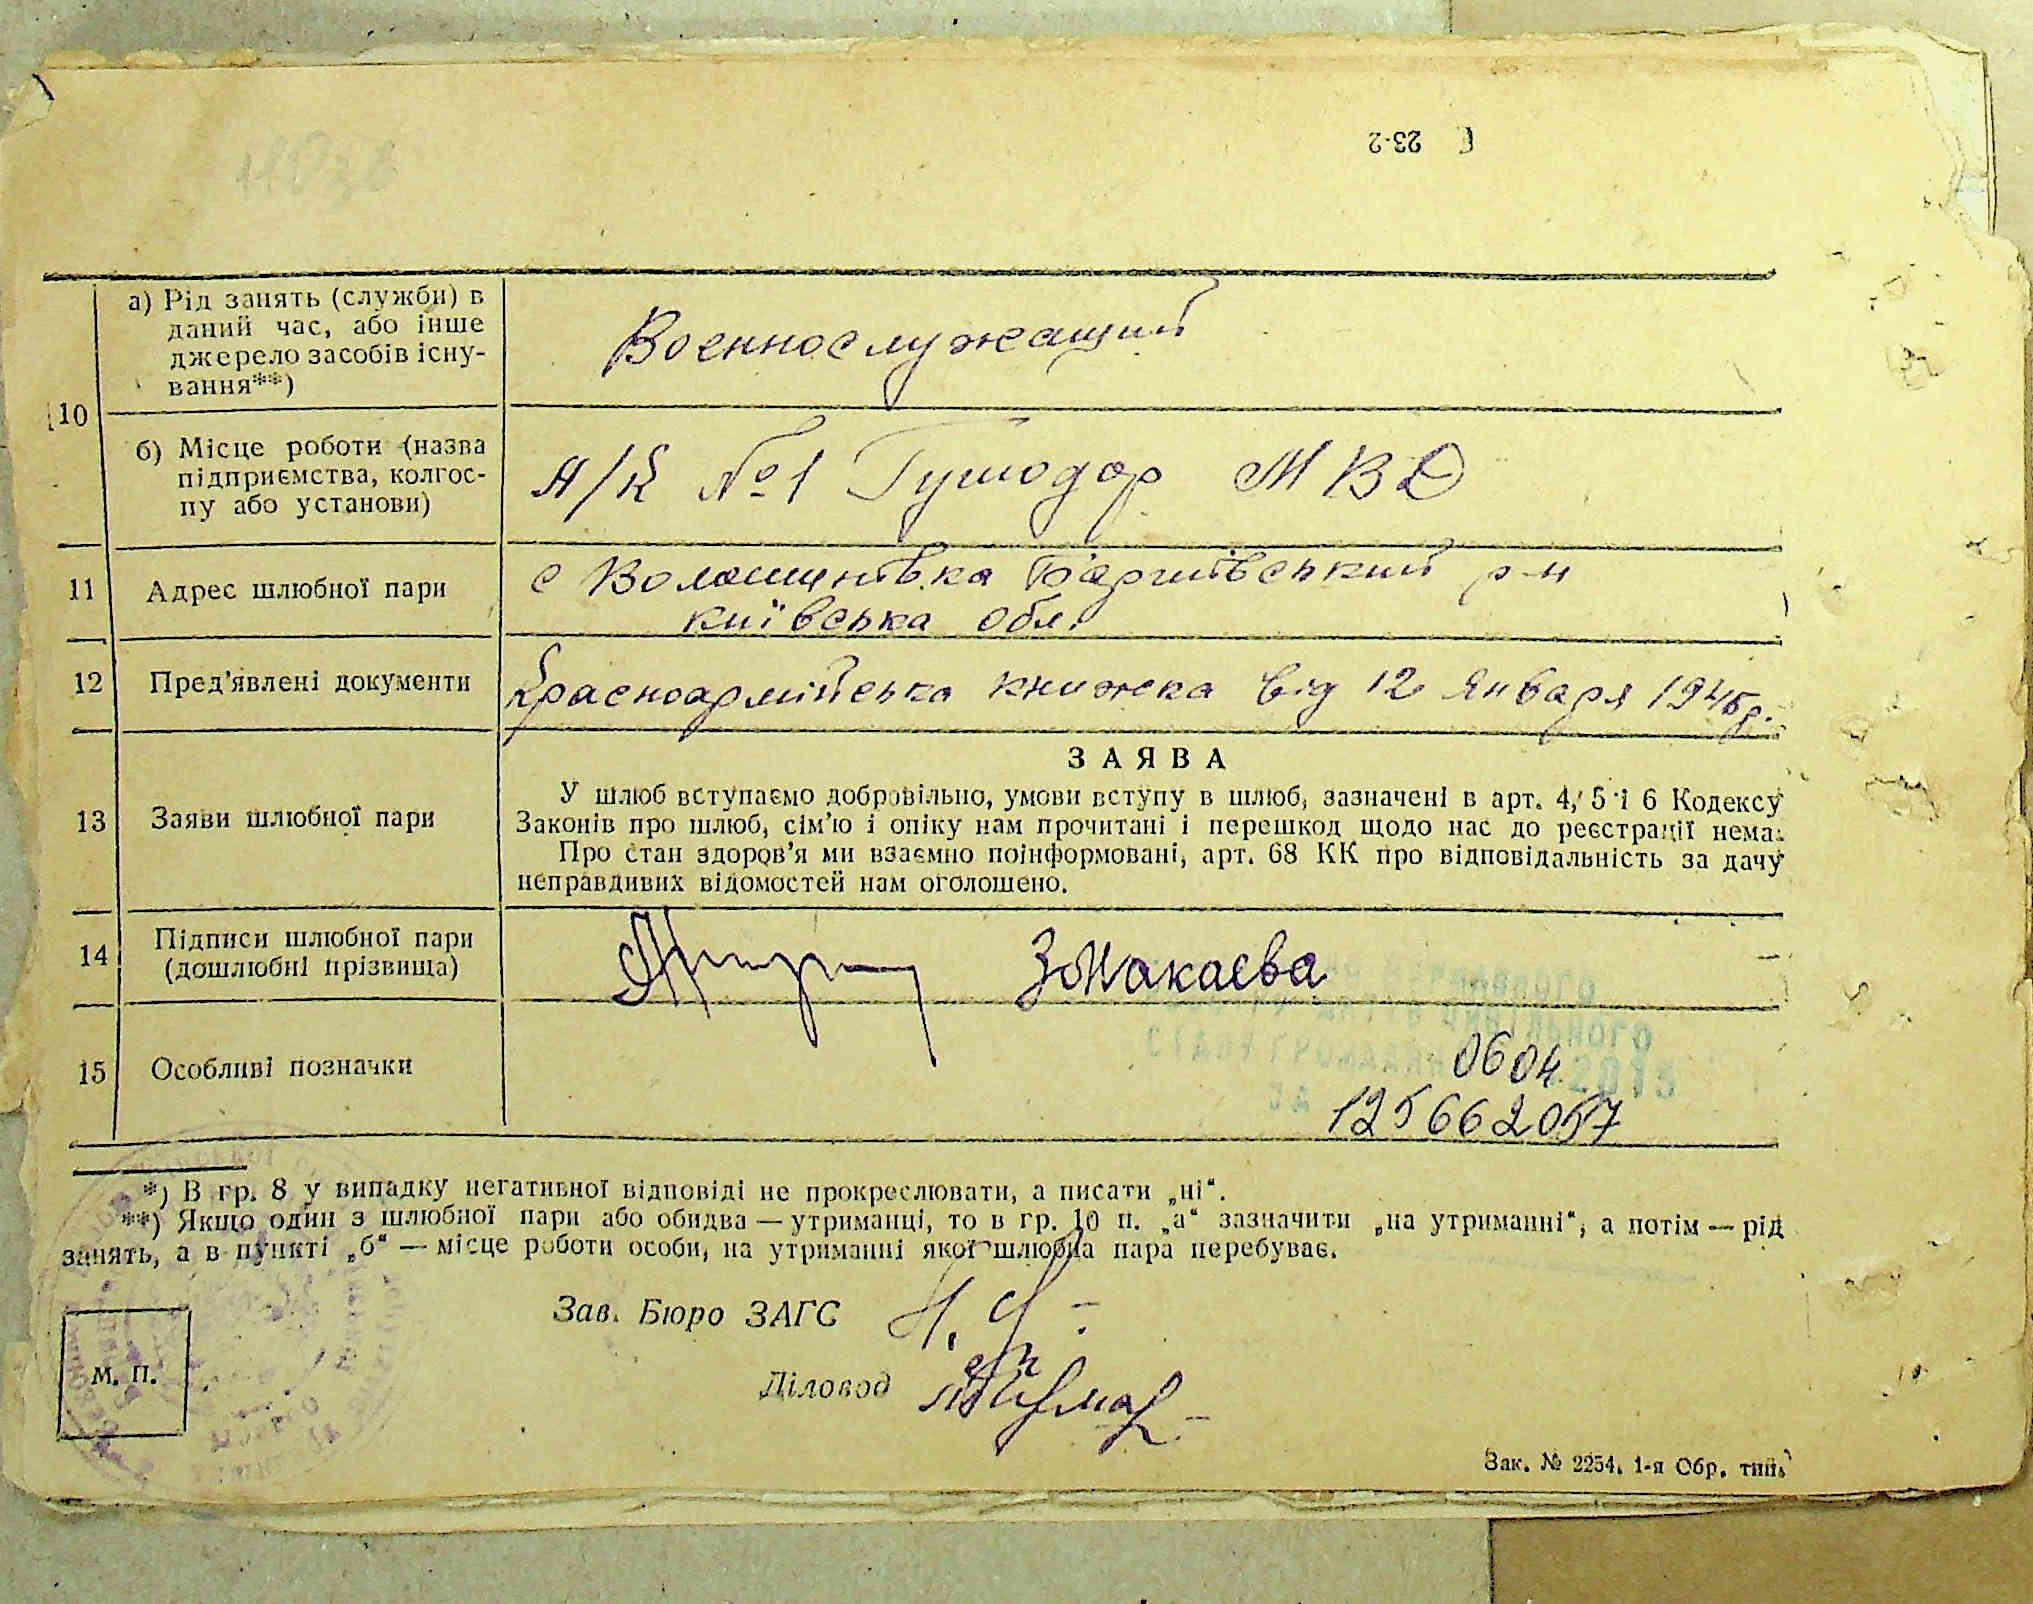 23-2
10
а) Рід занять (служби) в
даний час, або інше
джерело засобів існу-
вання**)
Военнослужащий
б) Місце роботи (назва
підприємства, колгос-
пу або установи)
А/К №1 Гушодор МВД
11
Адрес шлюбної пари
с Волошинівка Баришівський р-н
київська обл.
12
Пред'явлені документи
Красноармійська книжка від 12 Января 1946р.
13
Заяви шлюбної пари
ЗАЯВА
У шлюб вступаємо добровільно, умови вступу в шлюб, зазначені в арт. 4, 5 і 6 Кодексу
Законів про шлюб, сім'ю і опіку нам прочитані і перешкод щодо нас до реєстрації нема.
Про стан здоров'я ми взаємно поінформовані, арт. 68 КК про відповідальність за дачу
неправдивих відомостей нам оголошено.
14
Підписи шлюбної пари
(дошлюбні прізвища)
ЗМакаєва
15
Особливі позначки
0604
125662057
*) В гр. 8 у випадку негативної відповіді не прокреслювати, а писати „ні“.
**) Якщо один з шлюбної пари або обидва — утриманці, то в гр. 10 п. „а“ зазначити „на утриманні“, а потім — рід
занять, а в пункті „б“ — місце роботи особи, на утриманні якої шлюбна пара перебуває.
Зав. Бюро ЗАГС
Діловод
М. П.
Зак. № 2254. 1-я Обр. тип.